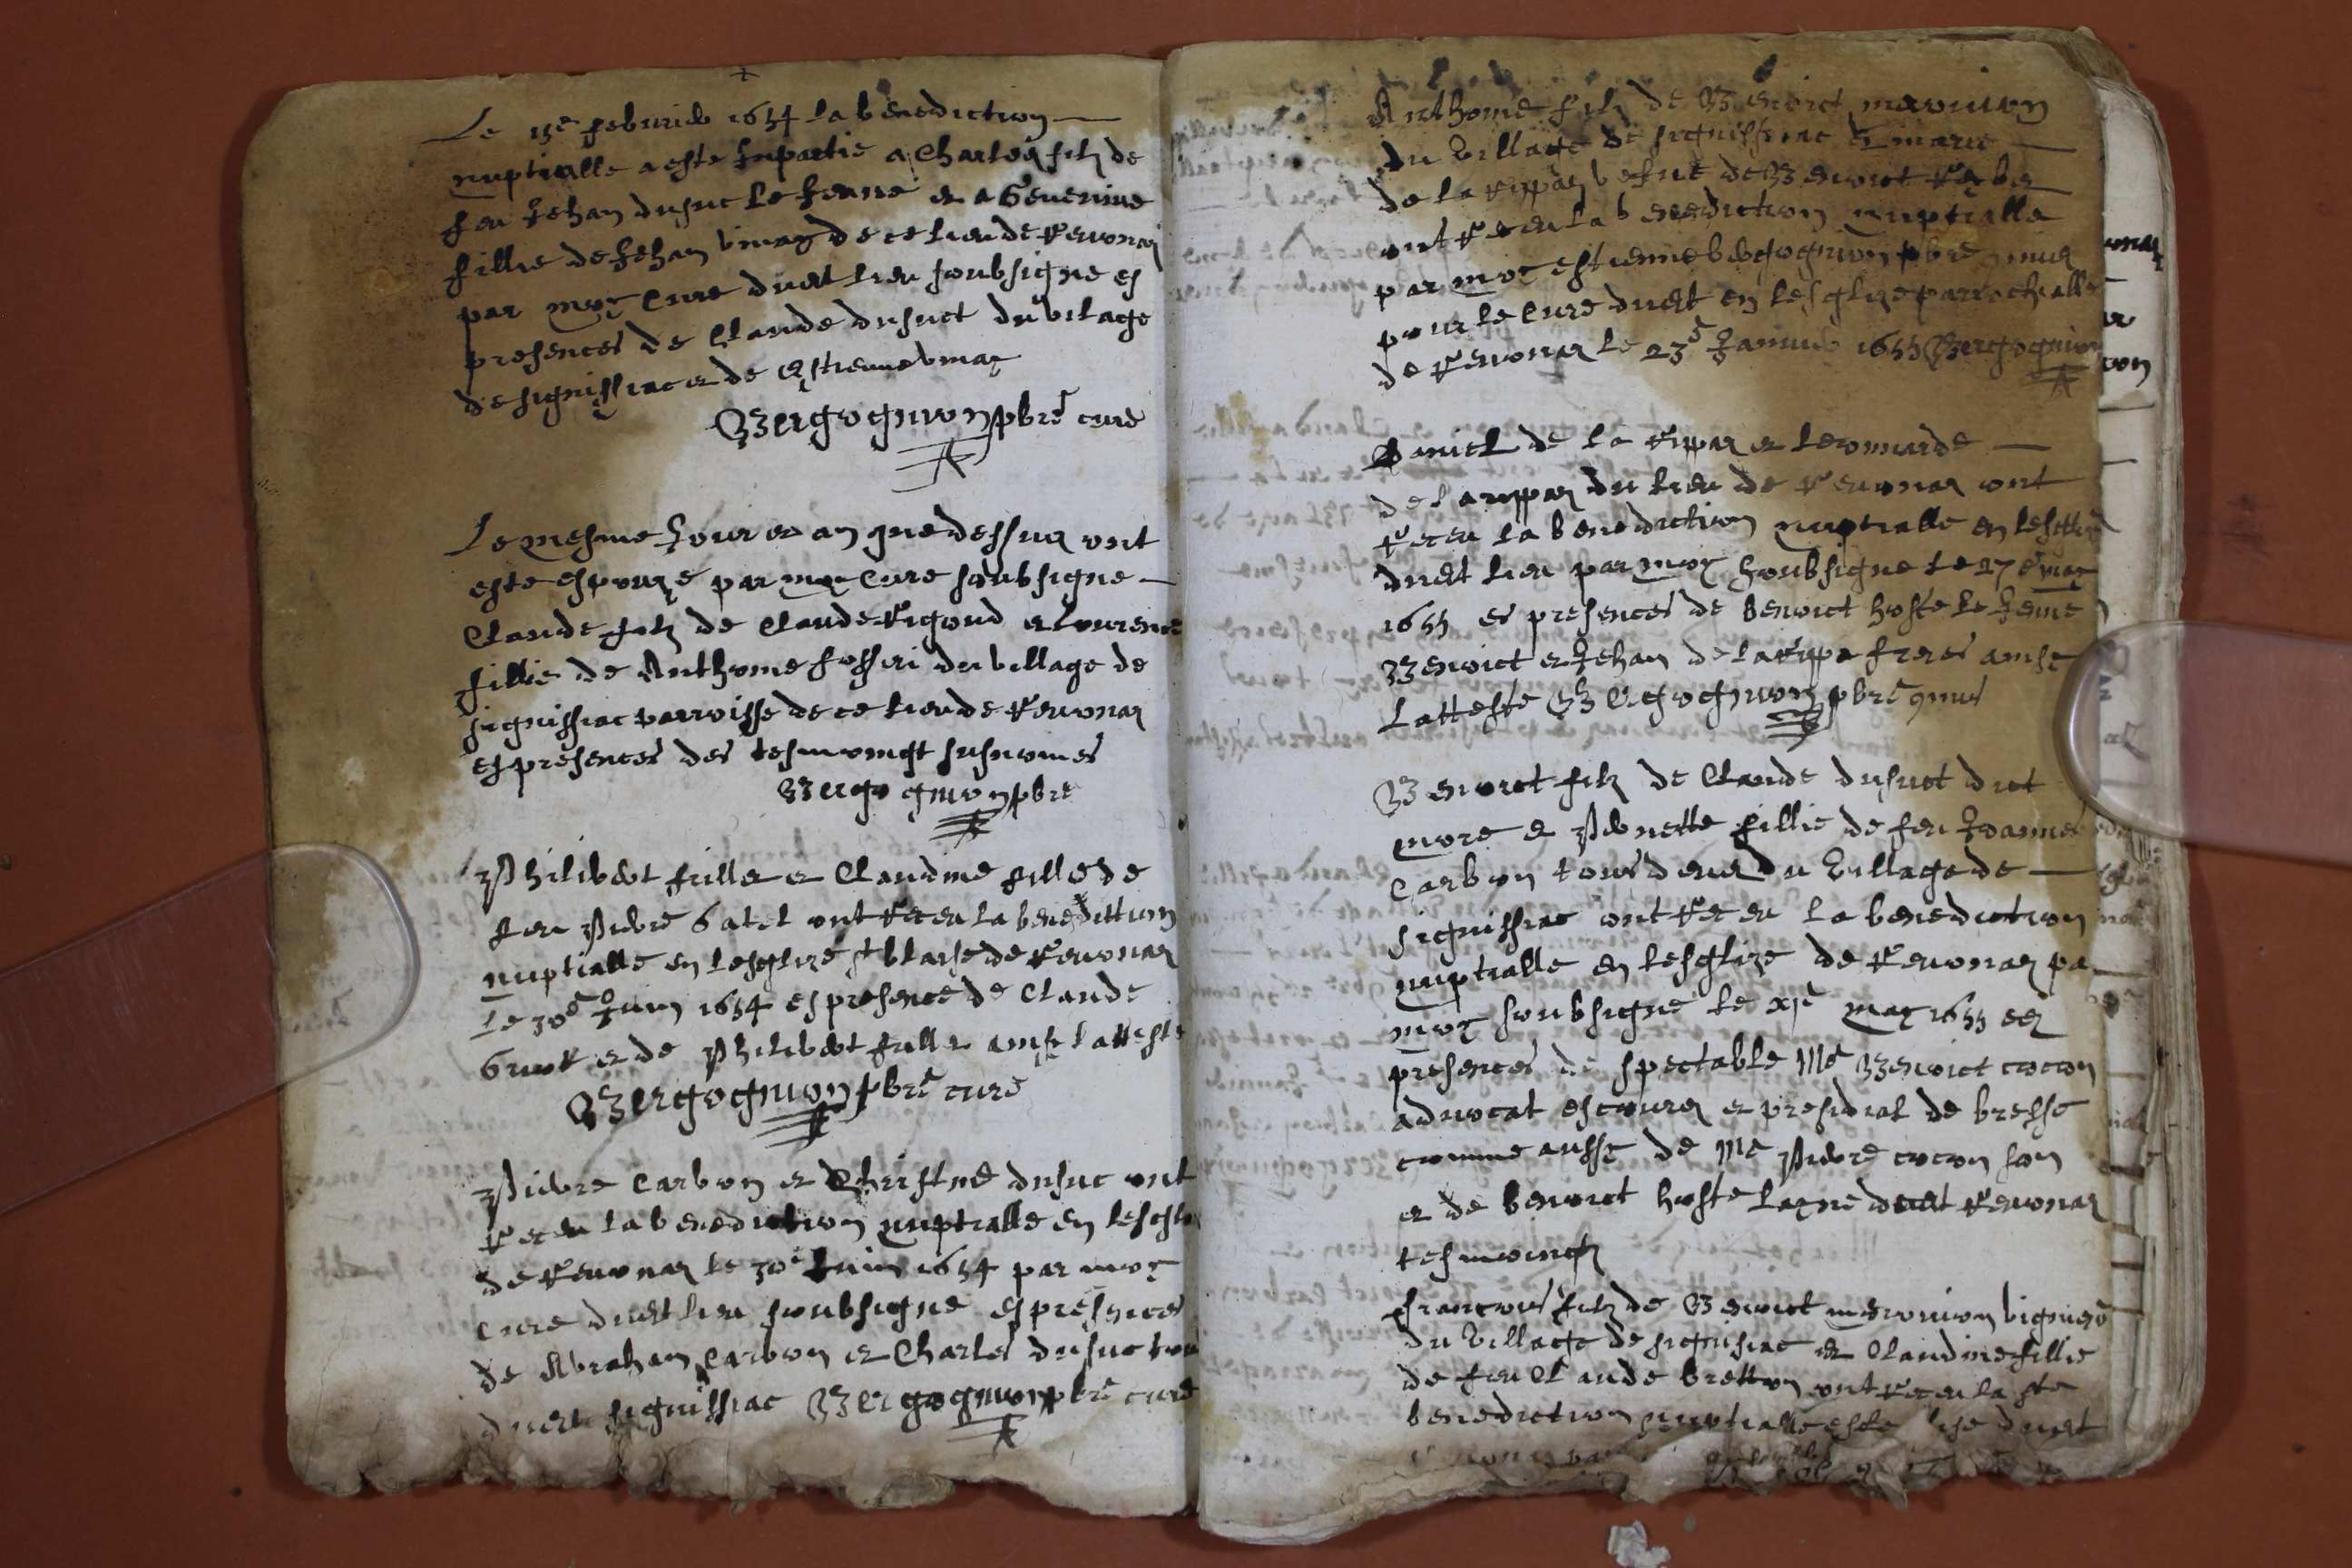 Le 15e febvrier 1654 la benediction
nuptialle a esté Inpartie a Charles filz de
feu Jehan dusuc le Jeune et a Gevenine
fillie de Jehan vinay de ce lieu de Revonas
par moy Curé dudt lieu soubsigné es
presences de Claude dusuct du vilage
de signissiac et de Estienne vinay
Bergognion pbre curé
Le mesme Jour et an que dessus ont
esté espouzé par moy Curé soubsigné
Claude filz de Claude Rigoud et Lourence
fillie de Anthome fosseri du village de
signissiac parroisse de ce lieu de Revonas
es presences des tesmoingt susnomés
Bergognion pbre
Philibert et Claudine fille de
feu Pierre Gatel ont Receu la benedittion
nuptialle en lesglize st blaise de Revonas
le 30e Juin 1654 es presence de Claude
et de Philibert ainsi latteste
Bergognion pbre curé
Pierre Carbon et Christine dusuc ont
Receu la benediction nuptialle en lesgli
de Revonas le 30e Juin 1654 par moy
curé dudt lieu soubsigné es presences
de Abraham Carbon et Charles dusuc tou
dudt signissiac Bergognion pbre curé
Anthome filz de Benoict
du village de signissiac et marie
de la Rippaz vefue de Benoict
ont Receu la benediction nuptialle
par moy estienne bergognion pbre
pour le curé dudt en lesglize parrochialle
de Revonas le 23e Janvier 1655 Bergognion
Daniel de la Rippaz et Leonnarde
de la rippaz du lieu de Revonas ont
Receu la benediction nuptialle en
dudt lieu par moy soubsigné le 27e
1655 es presences de benoict hoste le Jeune
Benoict et Jehan de la Rippa freres ainsi
Latteste Bergognion pbre
Benoict filz de Claude dusuct dict
more et Pernette fillie de feu Joannes
Carbon tous deux du village de
signissiac ont Receu la benediction
nuptialle en lesglize de Revonas pa
moy soubsigné le xje may 1655 es
presences de spectable Me Benoict cocon
advocat es cours et presidial de bresse
comme aussy de Me Pierre cocon son
et de benoict hoste layne dudt Revonas
tesmoingz
francois filz de Benoict
du village de signisiac et Claudine fillie
de feu Claude bretton ont Receu la ste
benediction nuptialle dudt